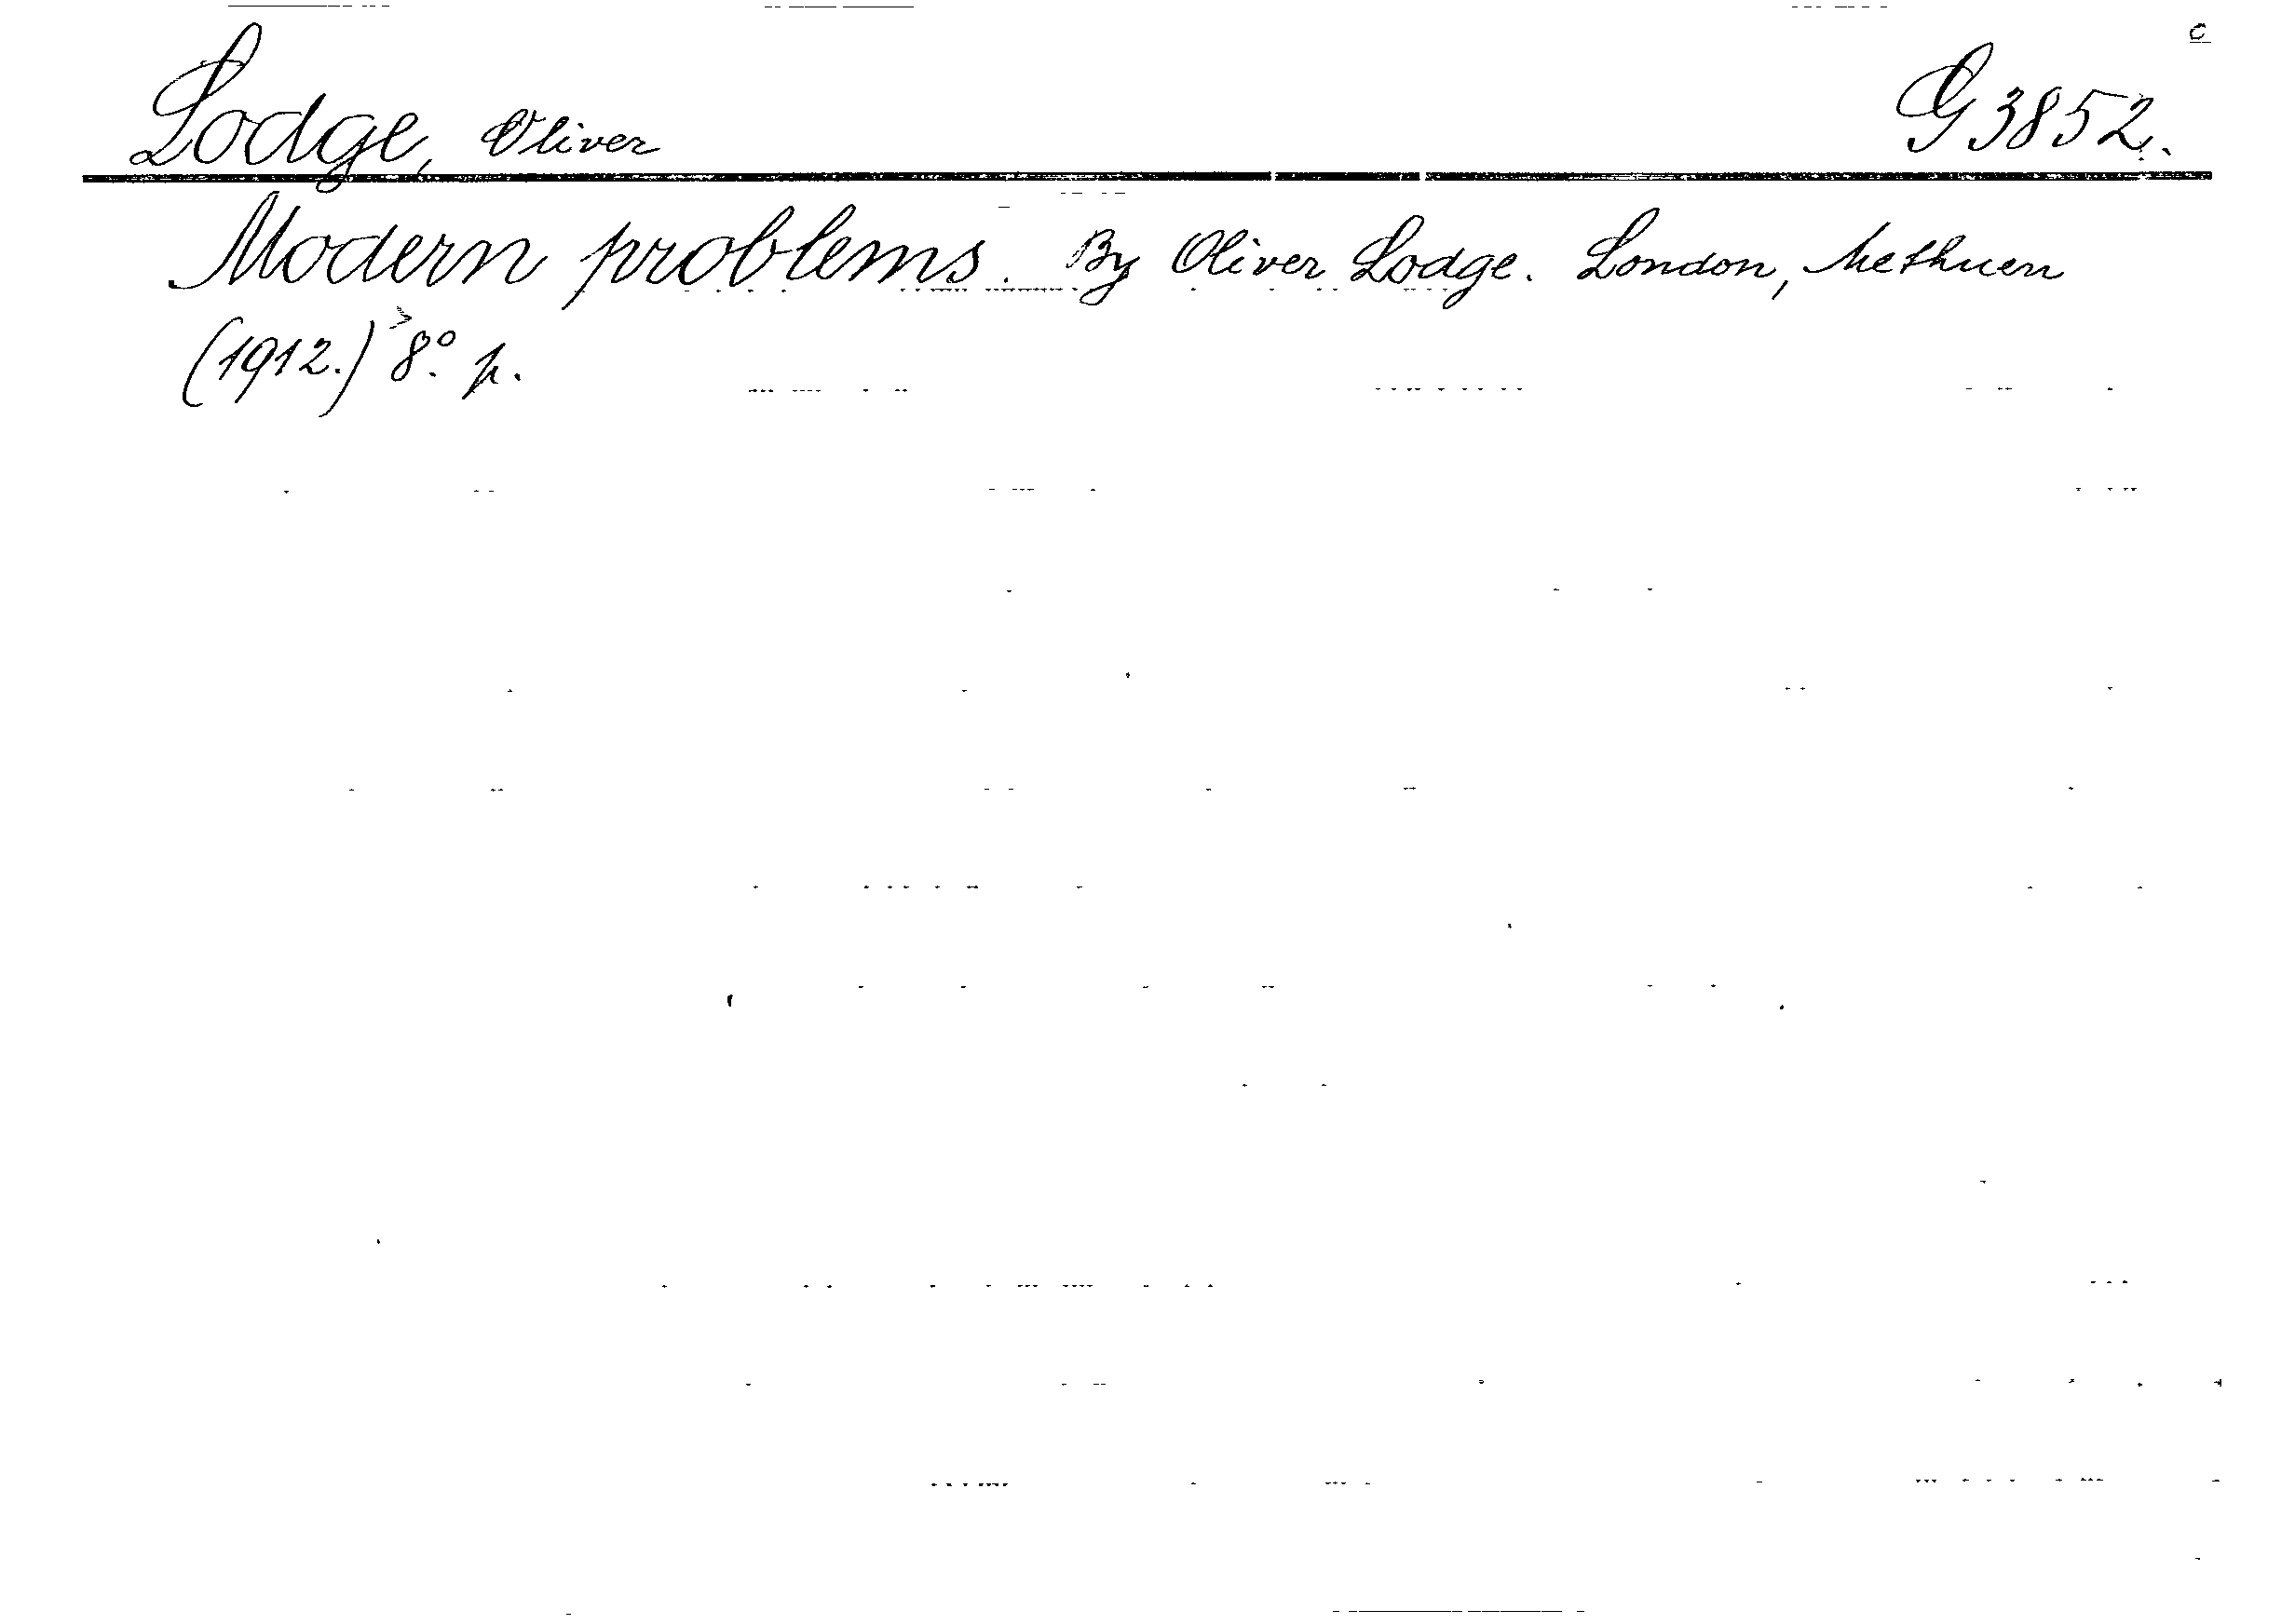 c
Lodge, Oliver G 3852.
Modern problems. By Oliver Lodge. London, Methuen
(1912.) 8º. p.